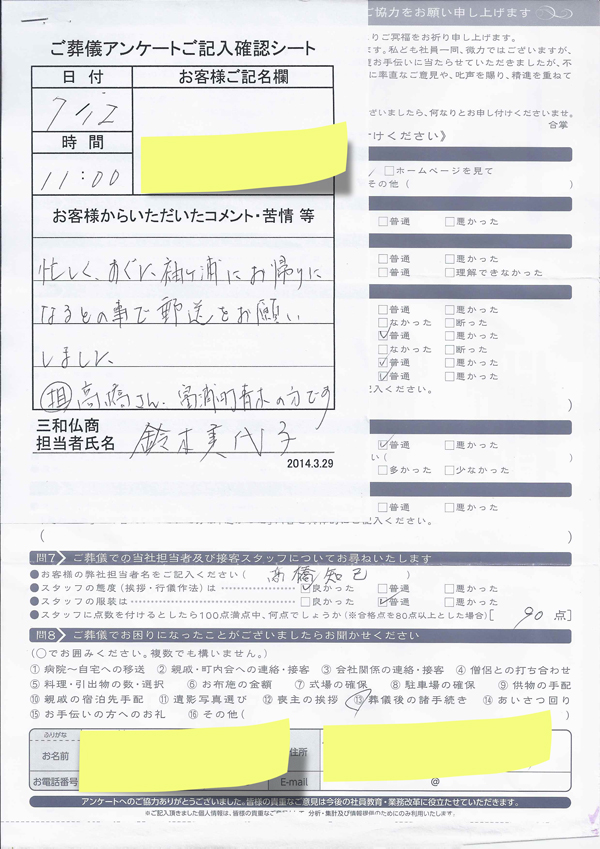 ご協力をお願い申し上げます
りご冥福をお祈り申し上げます。
ます。私ども社員一同、微力ではございますが、
お手伝いに当たらせていただきましたが、不
に率直なご意見や、叱声を賜り、精進を重ねて
ございましたら、何なりとお申し付けくださいませ。
合掌
けください》
ご葬儀アンケートご記入確認シート
日 付
お客様ご記名欄
7/12
時 間
11:00
お客様からいただいたコメント・苦情 等
忙しく、すぐに袖ヶ浦にお帰りに
なるとの事で郵送をお願い
しました
担 高橋さん、富浦町青木の方です
三和仏商
担当者氏名 鈴木美代子
2014.3.29
□ホームページを見て
その他 (
□普通 □悪かった
□普通 □悪かった
□普通 □理解できなかった
□普通 □悪かった
□なかった □断った
☑普通 □悪かった
□なかった □悪かった
☑普通 □悪かった
☑普通 □悪かった
記入ください。
)
☑普通 □悪かった
い( )
□多かった □少なかった
□普通 □悪かった
記入ください。
( )
問7 ご葬儀での当社担当者及び接客スタッフについてお尋ねいたします
●お客様の弊社担当者名をご記入ください ( 高橋知己 )
●スタッフの態度(挨拶・行儀作法)は ☑良かった □普通 □悪かった
●スタッフの服装は □良かった ☑普通 □悪かった
●スタッフに点数を付けるとしたら100点満点中、何点でしょうか(※合格点を80点以上とした場合)[ 90 点]
問8 ご葬儀でお困りになったことがございましたらお聞かせください
(○でお囲みください。複数でも構いません。)
① 病院~自宅への移送 ② 親戚・町内会への連絡・接客 ③ 会社関係の連絡・接客 ④ 僧侶との打ち合わせ
⑤ 料理・引出物の数・選択 ⑥ お布施の金額 ⑦ 式場の確保 ⑧ 駐車場の確保 ⑨ 供物の手配
⑩ 親戚の宿泊先手配 ⑪ 遺影写真選び ⑫ 喪主の挨拶 ⑬ 葬儀後の諸手続き ⑭ あいさつ回り
⑮ お手伝いの方へのお礼 ⑯ その他( )
ふりがな
お名前
住所
お電話番号
E-mail
@
アンケートへのご協力ありがとうございました。皆様の貴重なご意見は今後の社員教育・業務改革に役立たせていただきます。
※ご記入頂きました個人情報は、皆様の貴重なご 分析・集計及び情報提供のためにのみ利用いたします。